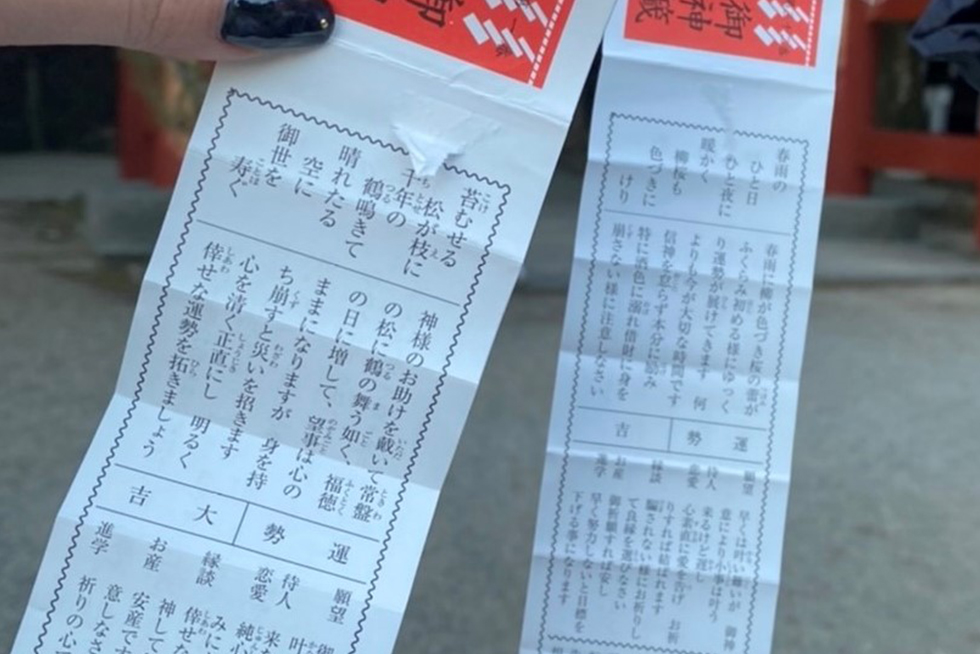 御
苔むせる
松が枝に
千年の
鶴鳴きて
晴れたる
空に
御世を
寿ぐ
神様のお助けを戴いて常盤
の松に鶴の舞う如く、福徳
の日に増して、望事は心の
ままになりますが 身を持
ち崩すと災いを招きます
心を清く正直にし 明るく
倖せな運勢を拓きましょう
運勢 大吉
願望
待人
恋愛
縁談
お産
進学
叶
純心
みに
倖せな
神して
安産で
意しなさ
祈りの心
御神
籤
春雨の
ひと日
ひと夜に
暖かく
柳桜も
色づきに
けり
春雨に柳が色づき桜の蕾が
ふくらみ初める様にゆっく
り運勢が展けてきます 何
よりも今が大切な時間です
信神を怠らず本分に励み
特に酒色に溺れ借財に身を
崩さない様に注意しなさい
運勢 吉
願望 早くは叶い難いが 御神
意により小事は叶う
待人 来るけど遅し
恋愛 心素直に愛を告げ お祈
りすれば結ばれます
縁談 騙されない様にお祈りし
て良縁を選びなさい
お産 御祈願すれば安し
進学 早く努力しないと目標を
下げる事になります